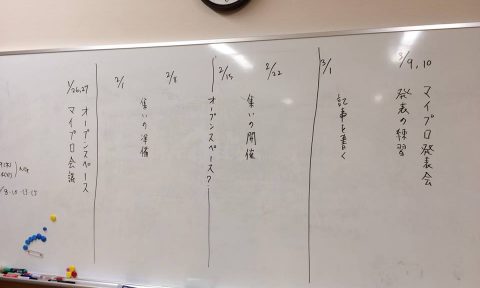 1/26,27
オープンスペース
マイプロ会議
2/1
2/8
集いの準備
2/15
オープンスペース?
2/22
集いの開催
3/1
記事を書く
3/9,10
マイプロ発表会
発表の練習